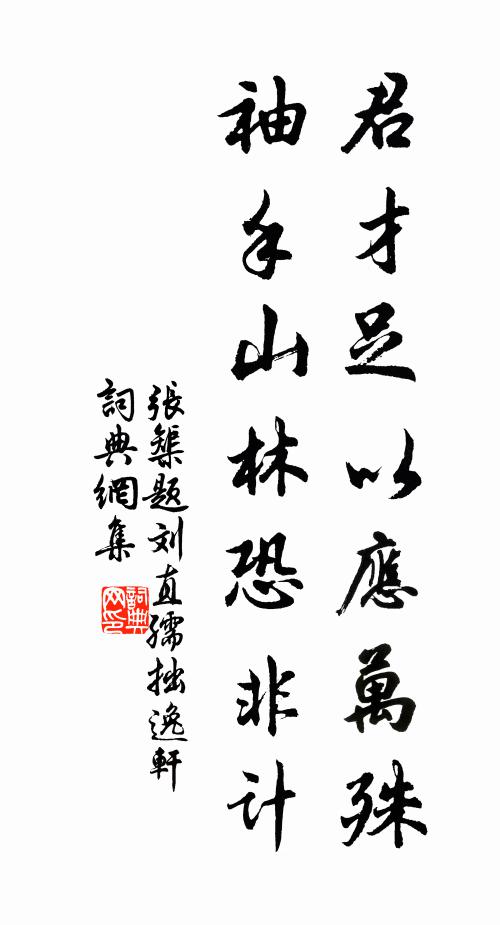 君才足以應萬殊
袖手山林恐非计
張榘题刘直孺拙逸軒
詞典網集
詞典网印